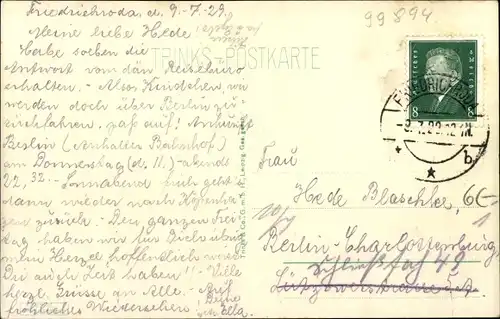 Friedrichroda, d. 9.-7.-29.
99894
Meine liebe Hede!
TRINKS-POSTKARTE
Habe soeben die
Antwort vom dän. Reisebüro
erhalten. - Also Kindchen, wir
werden doch über Berlin zu-
rückfahren, paß auf! Ankunft
Berlin (Anhalter Bahnhof)
am Donnerstag (d. 11.) abends
22,32. - Sonnabend früh geht's
dann wieder nach Kopenha-
gen zurück. - Den ganzen Frei-
tag haben wir für Dich übrig
mein Herzel hoffentlich wirst
Du auch Zeit haben!! - Viele
herzl. Grüsse an Alle. - Auf
fröhliches Wiedersehen! Deine
Ella.
8 8
FRIEDRICHRODA
b
Trinks & Co., G.m.b.H., Leipzig
Frau
Hede Blaschke,
Berlin-Charlottenburg
49
Lützowerstrasse
6E